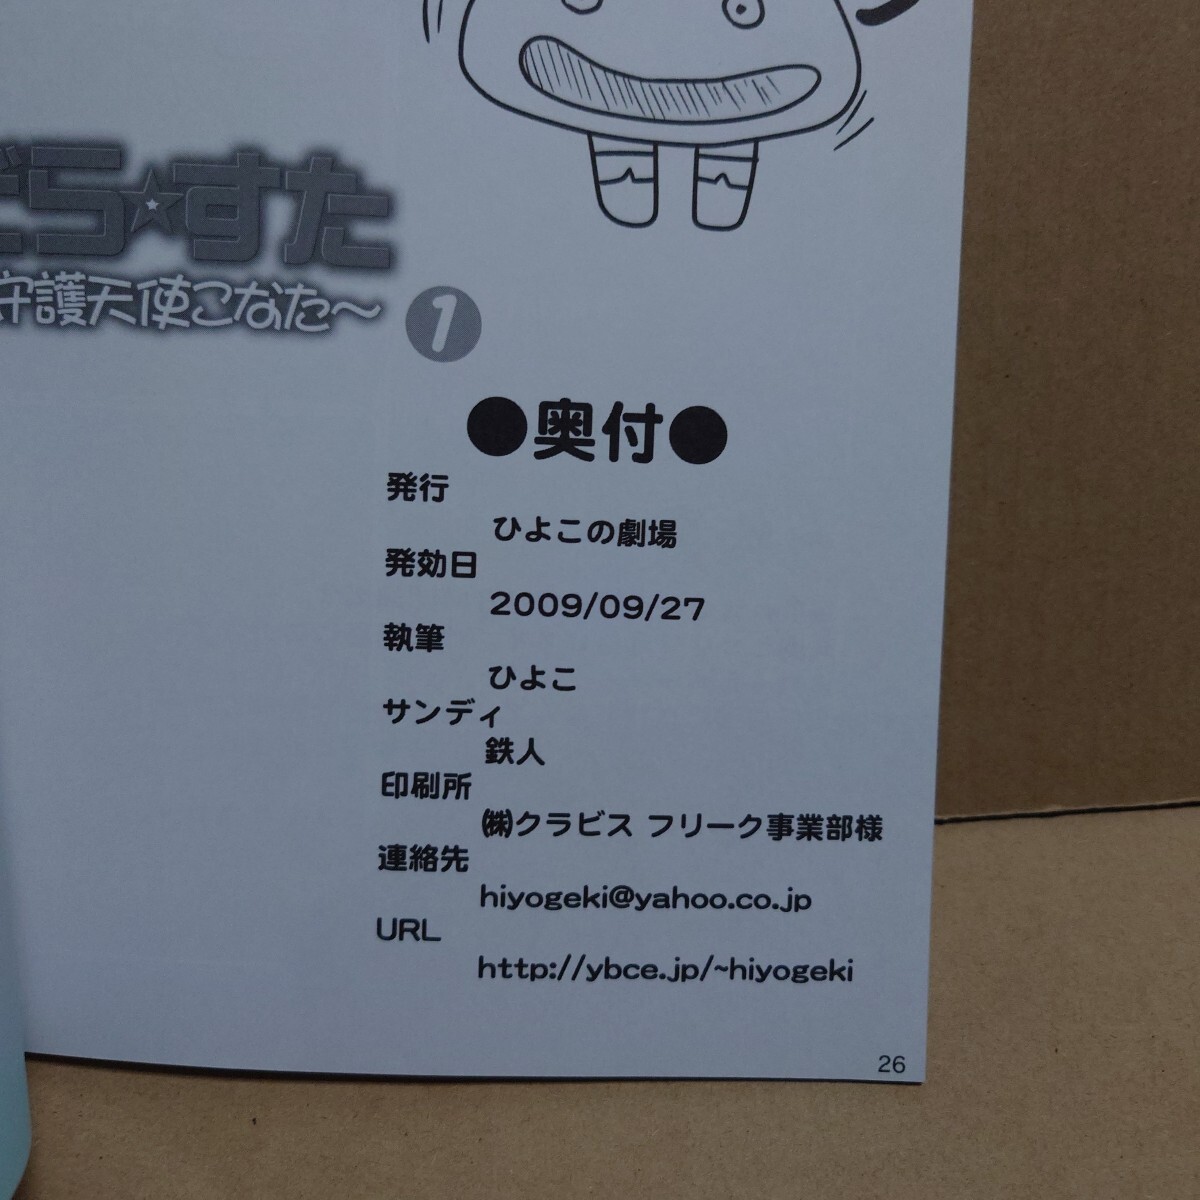 どら☆すた
守護天使こなた～
1
●奥付●
発行
ひよこの劇場
発効日
2009/09/27
執筆
ひよこ
サンディ
鉄人
印刷所
㈱クラビス フリーク事業部様
連絡先
hiyogeki@yahoo.co.jp
URL
http://ybce.jp/~hiyogeki
26